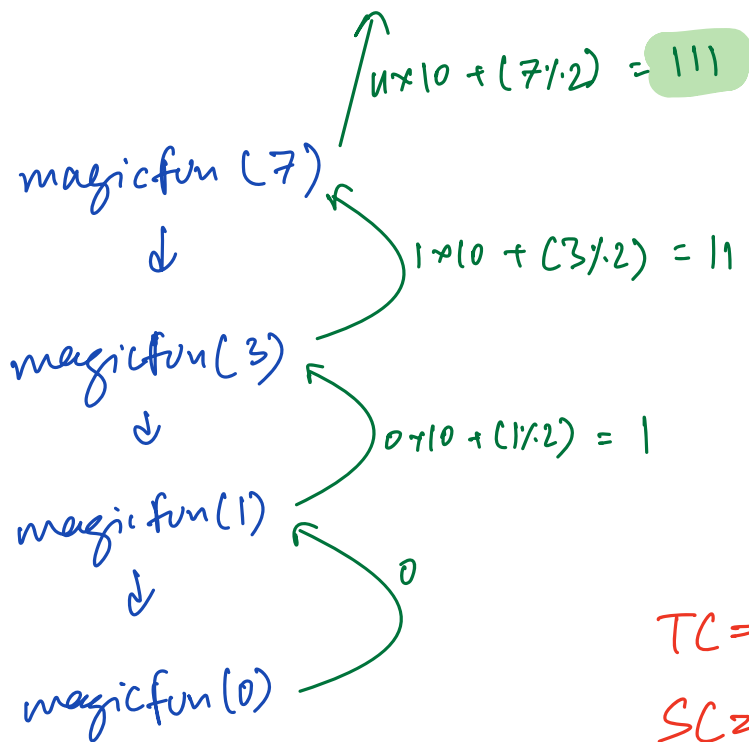 11×10 + (7%2) = 111
magicfun (7)
1×10 + (3%2) = 11
magicfun(3)
0×10 + (1%2) = 1
magicfun(1)
0
magicfun(0)
TC=
SC=